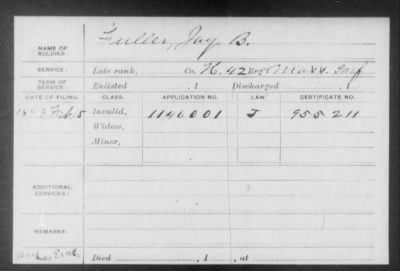 Fuller, Jay B.
NAME OF SOLDIER:
SERVICE: Late rank, Co. K, 42 Reg't Mass. Inf
TERM OF SERVICE: Enlisted , 1 Discharged , 1
DATE OF FILING. CLASS. APPLICATION NO. LAW. CERTIFICATE NO.
Feb. 5 Invalid, 1146001 J 955211
Widow,
Minor,
ADDITIONAL SERVICES:
REMARKS:
Died , 1 , at